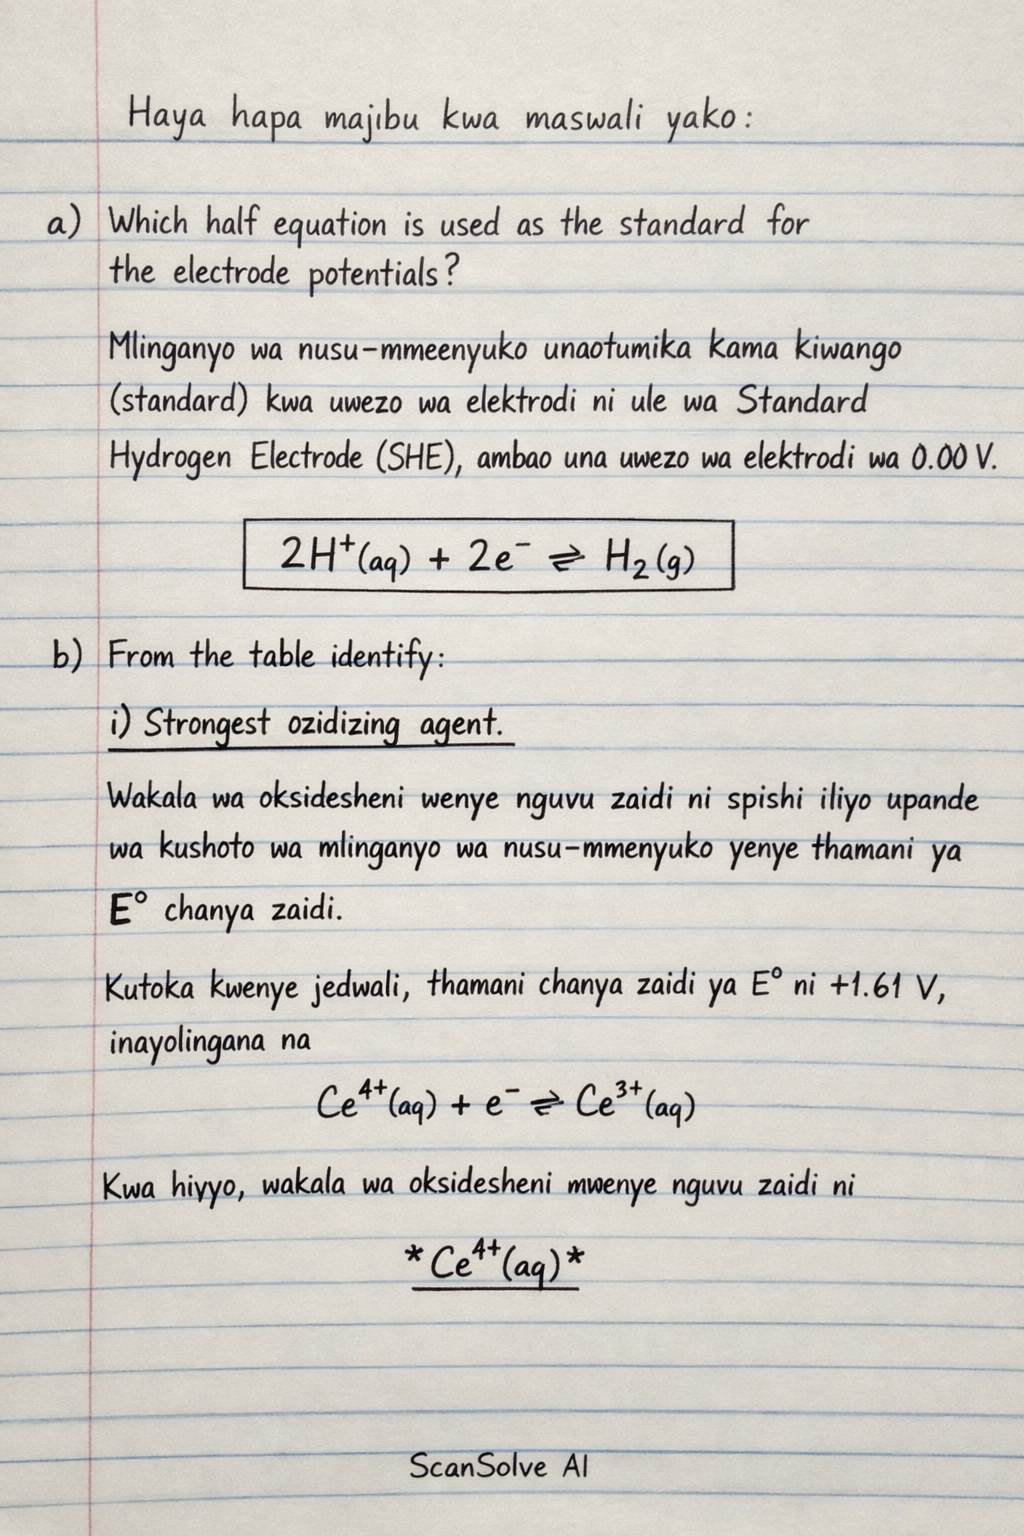 Haya hapa majibu kwa maswali yako:
a) Which half equation is used as the standard for
the electrode potentials?
Mlinganyo wa nusu-mmeenyuko unaotumika kama kiwango
(standard) kwa uwezo wa elektrodi ni ule wa Standard
Hydrogen Electrode (SHE), ambao una uwezo wa elektrodi wa 0.00 V.
2H⁺(aq) + 2e⁻ ⇌ H₂(g)
b) From the table identify:
i) Strongest ozidizing agent.
Wakala wa oksidesheni wenye nguvu zaidi ni spishi iliyo upande
wa kushoto wa mlinganyo wa nusu-mmenyuko yenye thamani ya
E° chanya zaidi.
Kutoka kwenye jedwali, thamani chanya zaidi ya E° ni +1.61 V,
inayolingana na
Ce⁴⁺(aq) + e⁻ ⇌ Ce³⁺(aq)
Kwa hiyyo, wakala wa oksidesheni mwenye nguvu zaidi ni
*Ce⁴⁺(aq)*
ScanSolve AI